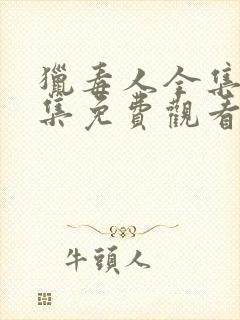 獵毒人全集
集免費觀看
牛頭人